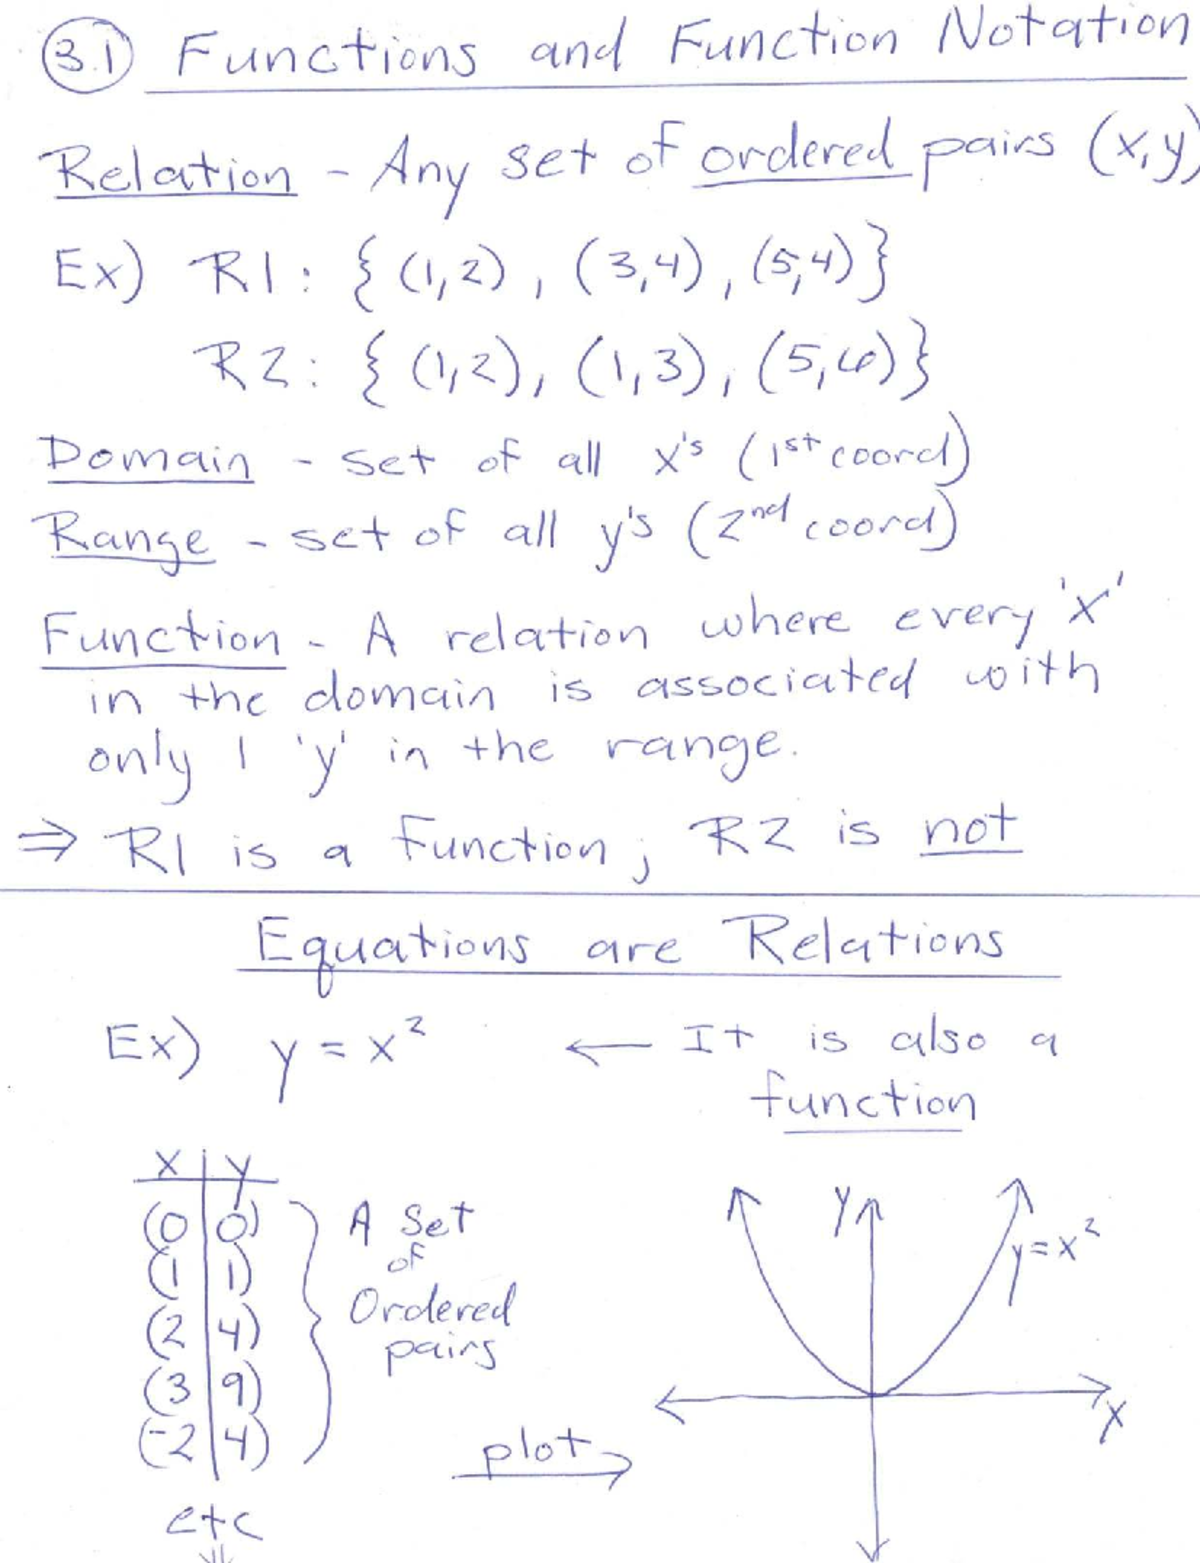 3.1 Functions and Function Notation
Relation - Any set of ordered pairs (x,y)
Ex) R1: {(1,2), (3,4), (5,4)}
R2: {(1,2), (1,3), (5,6)}
Domain - set of all x's (1st coord)
Range - set of all y's (2nd coord)
Function - A relation where every 'x'
in the domain is associated with
only 1 'y' in the range.
⇒ R1 is a function; R2 is not
Equations are Relations
Ex) y = x² ← It is also a
function
x | y
(0 | 0)
(1 | 1)
(2 | 4)
(3 | 9)
(-2 | 4)
etc
A Set
of
Ordered
pairs
plot →
y
y=x²
x